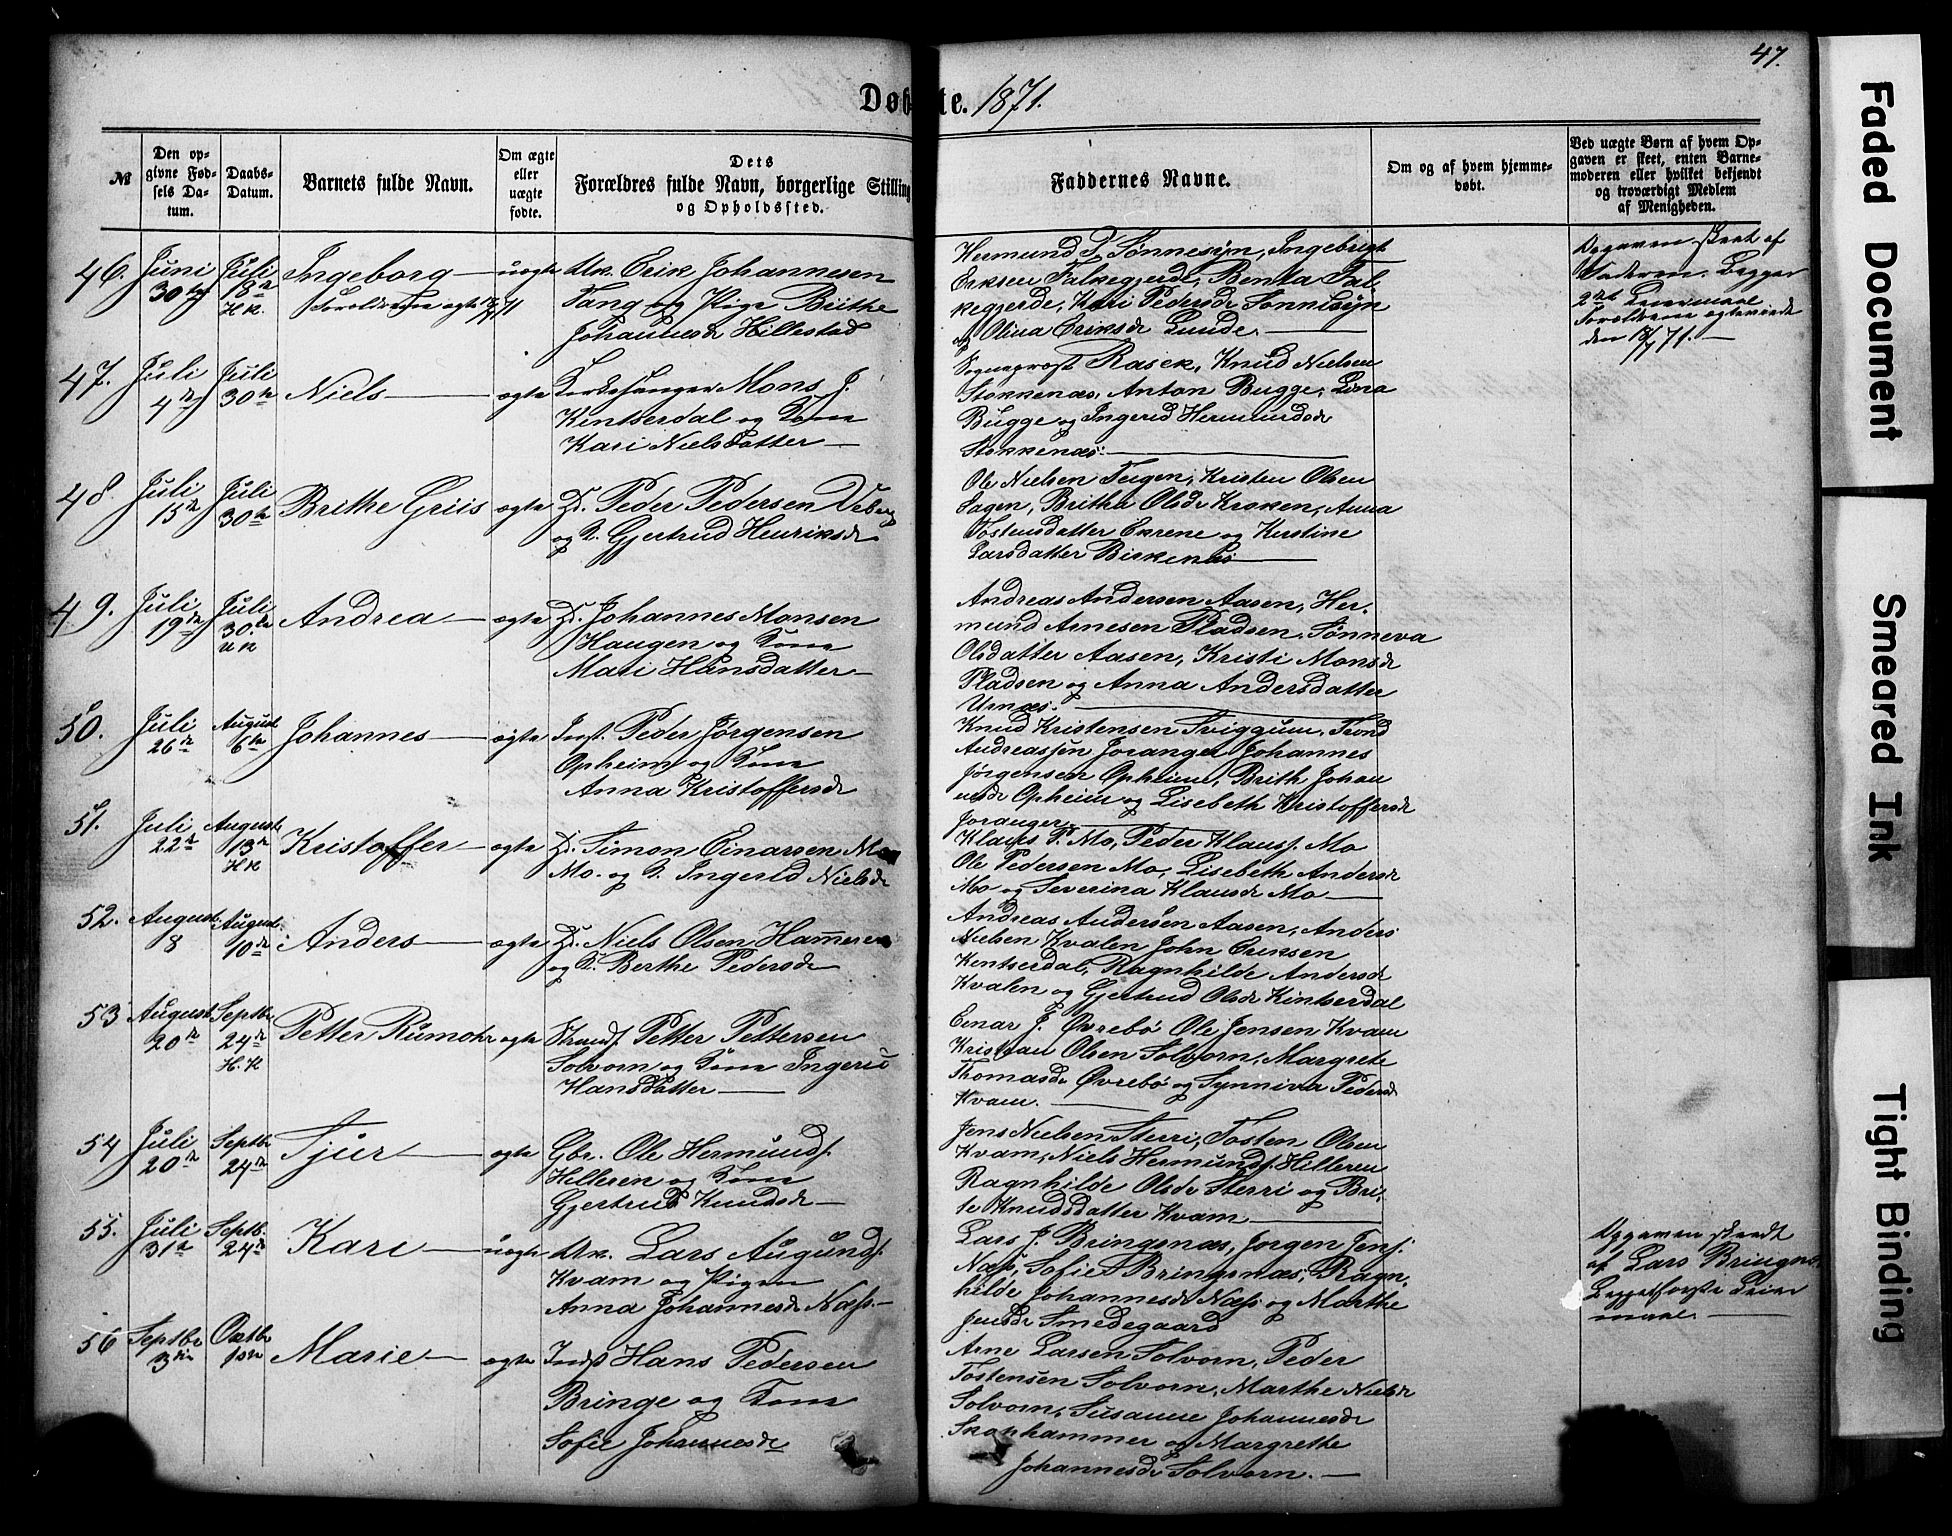 47.
Døbte. 1871.
№
Den op-
givne Fød-
sels Da-
tum.
Daabs-
Datum.
Barnets fulde Navn.
Om ægte
eller
uægte
fødte.
Dets
Forældres fulde Navn, borgerlige Stilling
og Opholdssted.
Faddernes Navne.
Om og af hvem hjemme-
døbt.
Ved uægte Børn af hvem Op-
gaven er skeet, enten Barne-
moderen eller hvilket bekjendt
og troværdigt Medlem
af Menigheden.
46. Juni 30te Juli 18de H K. Ingeborg uægte Uk. Erik Johannesen
Forældrene ægtev. 18/7 71
Tang og Pige Brithe
Johannesdr Hillestad
Hermund T. Sønnesyn, Ingebrigt
Eriksen Falkegjerde, Benta Fal-
kegjerde, Kari Pedersdr Sønnesyn
og Olina Eriksdr Lunde.
Opgaven skeet af
Faderen. Begges
2det Leiermaal
Forældrene ægteviede
den 18/7 71.
47. Juli 4de Juli 30te Niels ægte Kirkesanger Mons J.
Kentserdal og Kone
Kari Nielsdatter
Sogneprest Rasch, Knud Nielsen
Stokkenæs, Anton Bugge, Lena
Bugge og Ingerid Hermundsdr
Stokkenæs.
48. Juli 15de Juli 30te Brithe Griis ægte Hd. Peder Pedersen Veberg
og K. Gjertrud Henriksdr
Ole Nielsen Teigen, Kristen Olsen
Hagen, Britha Olsdr Kroken, Anna
Tostensdatter Ekrene og Kirstine
Larsdatter Birkenæs
49. Juli 19de Juli 30te U K Andrea ægte Hd. Johannes Monsen
Haugen og Kone
Mari Hansdatter
Andreas Andersen Aasen, Her-
mund Arnesen Pladsen, Sønneva
Olsdatter Aasen, Kristi Monsdr
Pladsen og Anna Andersdatter
Urnæs.
50. Juli 26de August 6te Johannes ægte Inst. Peder Jørgensen
Opheim og Kone
Anna Kristoffersdr
Knud Kristensen Sviggum, Trond
Andreassen Joranger Johannes
Jørgensen Opheim, Brith Johan
nesdr Opheim og Lisebeth Kristoffersdr
Joranger
51. Juli 22de August 13de H K Kristoffer ægte Hd. Simon Einarsen
Mo. og K. Ingerid Nielsdr
Klaus P. Mo, Peder Klauss. Mo
Ole Pedersen Mo, Lisebeth Andersdr
Mo og Severina Klausdr Mo
52. August 8 August 10de Anders ægte Hd. Niels Olsen Hammeren
og K. Berthe Pedersdr
Andreas Andersen Aasen, Anders
Nielsen Kvalen John Eriksen
Kentserdal, Ragnhilde Andersdr
Kvalen og Gjertrud Olsdr Kintserdal
53 August 20de Septbr 24de H. K Petter Rumohr ægte Strands. Petter Pettersen
Solvorn og Kone Ingerid
Hansdatter
Einar J. Øvrebø Ole Jensen Kvam
Kristian Olsen Solvorn, Margrete
Thomasdr Øvrebø og Synniva Pedersdr
Kvam.
54 Juli 20de Septbr 24de Sjur ægte Gbr. Ole Hermunds.
Hilleren og Kone
Gjertrud Knudsdr
Jens Nielsen Sterri, Tosten Olsen
Kvam, Niels Hermunds. Hilleren
Ragnhilde Olsdr Sterri og Bri-
te Knudsdatter Kvam
55. Juli 31te Septb. 24de Kari uægte Uk. Lars Augunds.
Kvam og Pigen
Anna Johannesdr Næss.
Lars J. Bringenæs, Jørgen Jens.
Næss, Sofie Bringenæs, Ragn-
hilde Johannesdr Næss og Marthe
Jensdr Smedegaard
Opgaven skeedt
af Lars Bringenæs.
Begges første Leier
maal.
56 Septbr 3die Octbr 1ste Marie ægte Inds. Hans Pedersen
Bringe og Kone
Sofie Johannesdr
Arne Larsen Solvorn, Peder
Tostensen Solvorn, Marthe Nielsdr
Solvorn, Susanne Johannesdr
Skophammer og Margrethe
Johannesdr Solvorn.
Faded Document
Smeared Ink
Tight Binding